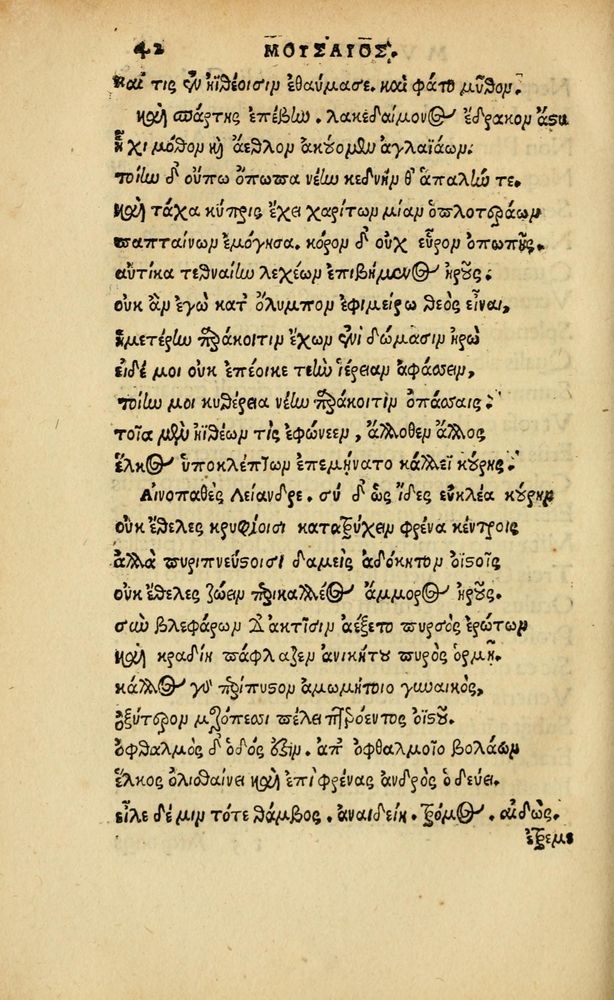 42 ΜΟΥΣΑΙΟΣ.
καί τις ἐν ἠϊθέοισιν ἐθαύμασε. καὶ φάτο μῦθον.
καὶ σπάρτης ἐπέβην. λακεδαίμονος ἔδρακον ἄστυ
ἧχι μόθον καὶ ἄεθλον ἀκούομεν ἀγλαϊάων.
τοίην δ' οὔπω ὄπωπα νέην κεδνήν θ' ἁπαλήν τε.
καὶ τάχα κύπρις ἔχει χαρίτων μίαν ὁπλοτεράων
παπταίνων ἐμόγησα. κόρον δ' οὐχ εὗρον ὀπωπῆς.
αὐτίκα τεθναίην λεχέων ἐπιβήμενος ἡροῦς·
οὐκ ἂν ἐγὼ κατ' ὄλυμπον ἐφιμείρω θεὸς εἶναι,
ἡμετέρην παράκοιτιν ἔχων ἐνὶ δώμασιν ἡρώ
εἰ δέ μοι οὐκ ἐπέοικε τεὴν ἱέρειαν ἀφάσσειν,
τοίην μοι κυθέρεια νέην παράκοιτιν ὀπάσσαις·
τοῖα μὲν ἠϊθέων τὶς ἐφώνεεν, ἄλλοθεν ἄλλος
ἕλκος ὑποκλέπτων ἐπεμήνατο κάλλεϊ κούρης·
Αἰνοπαθὲς Λείανδρε. σὺ δ' ὡς ἴδες εὐκλέα κούρην
οὐκ ἔθελες κρυφίοισι κατατρύχειν φρένα κέντροις
ἀλλὰ πυριπνεύστοισι δαμεὶς ἀδόκητον ὀϊστοῖς
οὐκ ἔθελες ζώειν περικαλλέος ἄμμορος ἡροῦς.
σὺν βλεφάρων δ' ἀκτῖσιν ἀέξετο πυρσὸς ἐρώτων
καὶ κραδίη πάφλαζεν ἀνικήτου πυρὸς ὁρμῇ.
κάλλος γὰρ περίπυστον ἀμωμήτοιο γυναικὸς,
ὀξύτερον μερόπεσσι πέλει πτερόεντος ὀϊστοῦ.
ὀφθαλμὸς δ' ὁδός ἐστιν. ἀπ' ὀφθαλμοῖο βολάων
ἕλκος ὀλισθαίνει καὶ ἐπὶ φρένας ἀνδρὸς ὁδεύει.
εἷλε δέ μιν τότε θάμβος. ἀναιδείη. τρόμος. αἰδώς.
ἔτρεμε